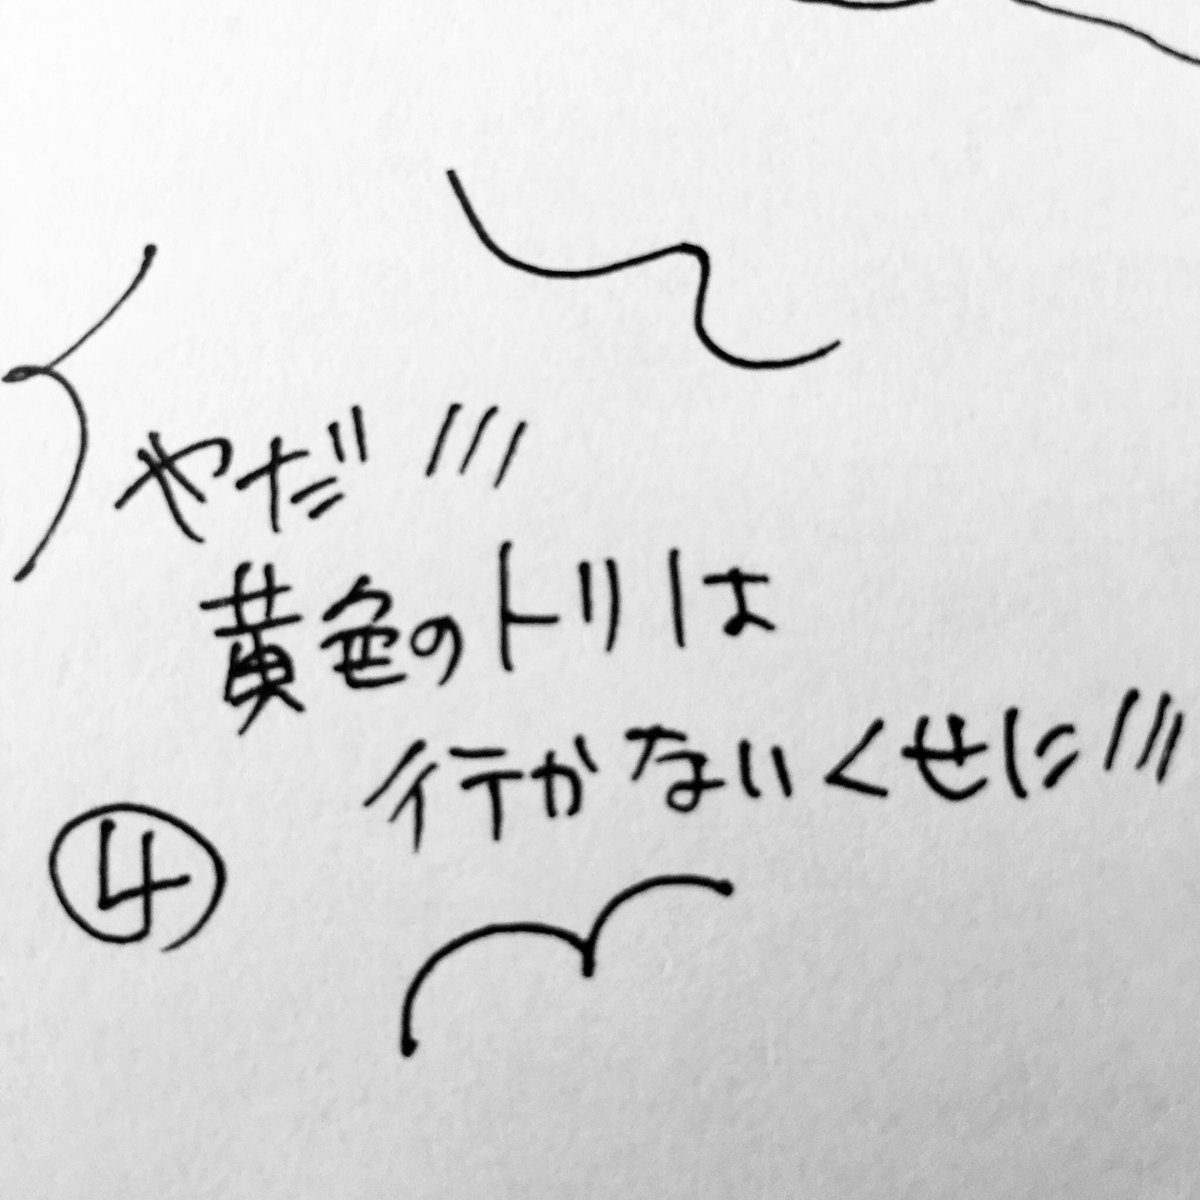 やだ!!!
黄色のトリは
行かないくせに!!!
④